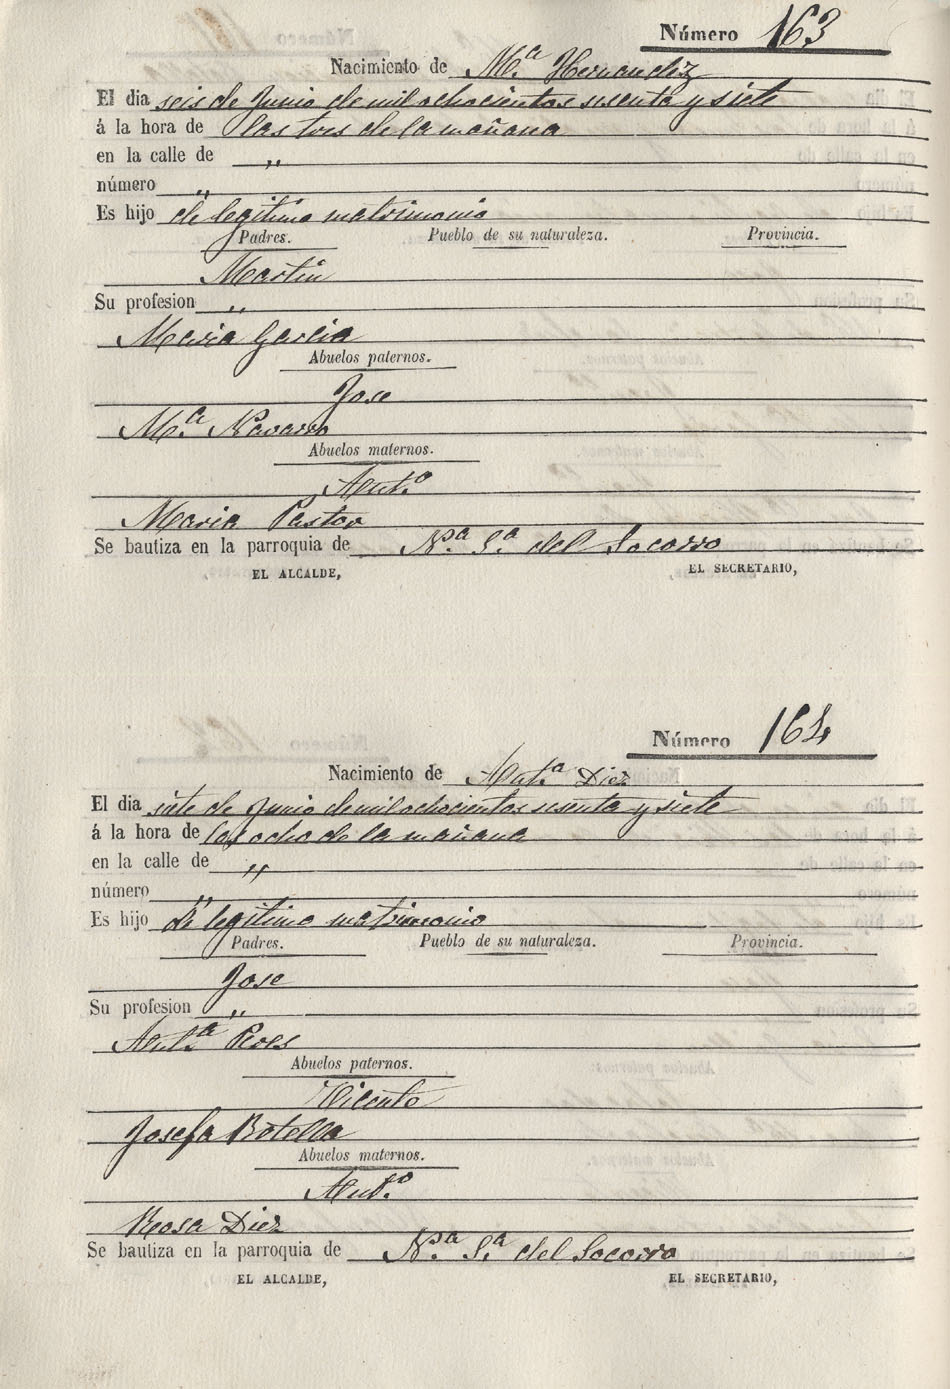 Número 163
Nacimiento de Mª Hernandez
El dia seis de Junio de mil ochocientos sesenta y siete
á la hora de las tres de la mañana
en la calle de „
número „
Es hijo de legitimo matrimonio
Padres. Pueblo de su naturaleza. Provincia.
Martin
Su profesion „
Maria Garcia
Abuelos paternos.
Jose
Mª Navarro
Abuelos maternos.
Antº
Maria Pastor
Se bautiza en la parroquia de Nª Sª del Socorro
EL ALCALDE, EL SECRETARIO,
Número 164
Nacimiento de Antª Diez
El dia siete de Junio de mil ochocientos sesenta y siete
á la hora de las ocho de la mañana
en la calle de „
número „
Es hijo de legitimo matrimonio
Padres. Pueblo de su naturaleza. Provincia.
Jose
Su profesion „
Antª
Abuelos paternos.
Vicente
Josefa Botella
Abuelos maternos.
Antº
Rosa Diez
Se bautiza en la parroquia de Nª Sª del Socorro
EL ALCALDE, EL SECRETARIO,